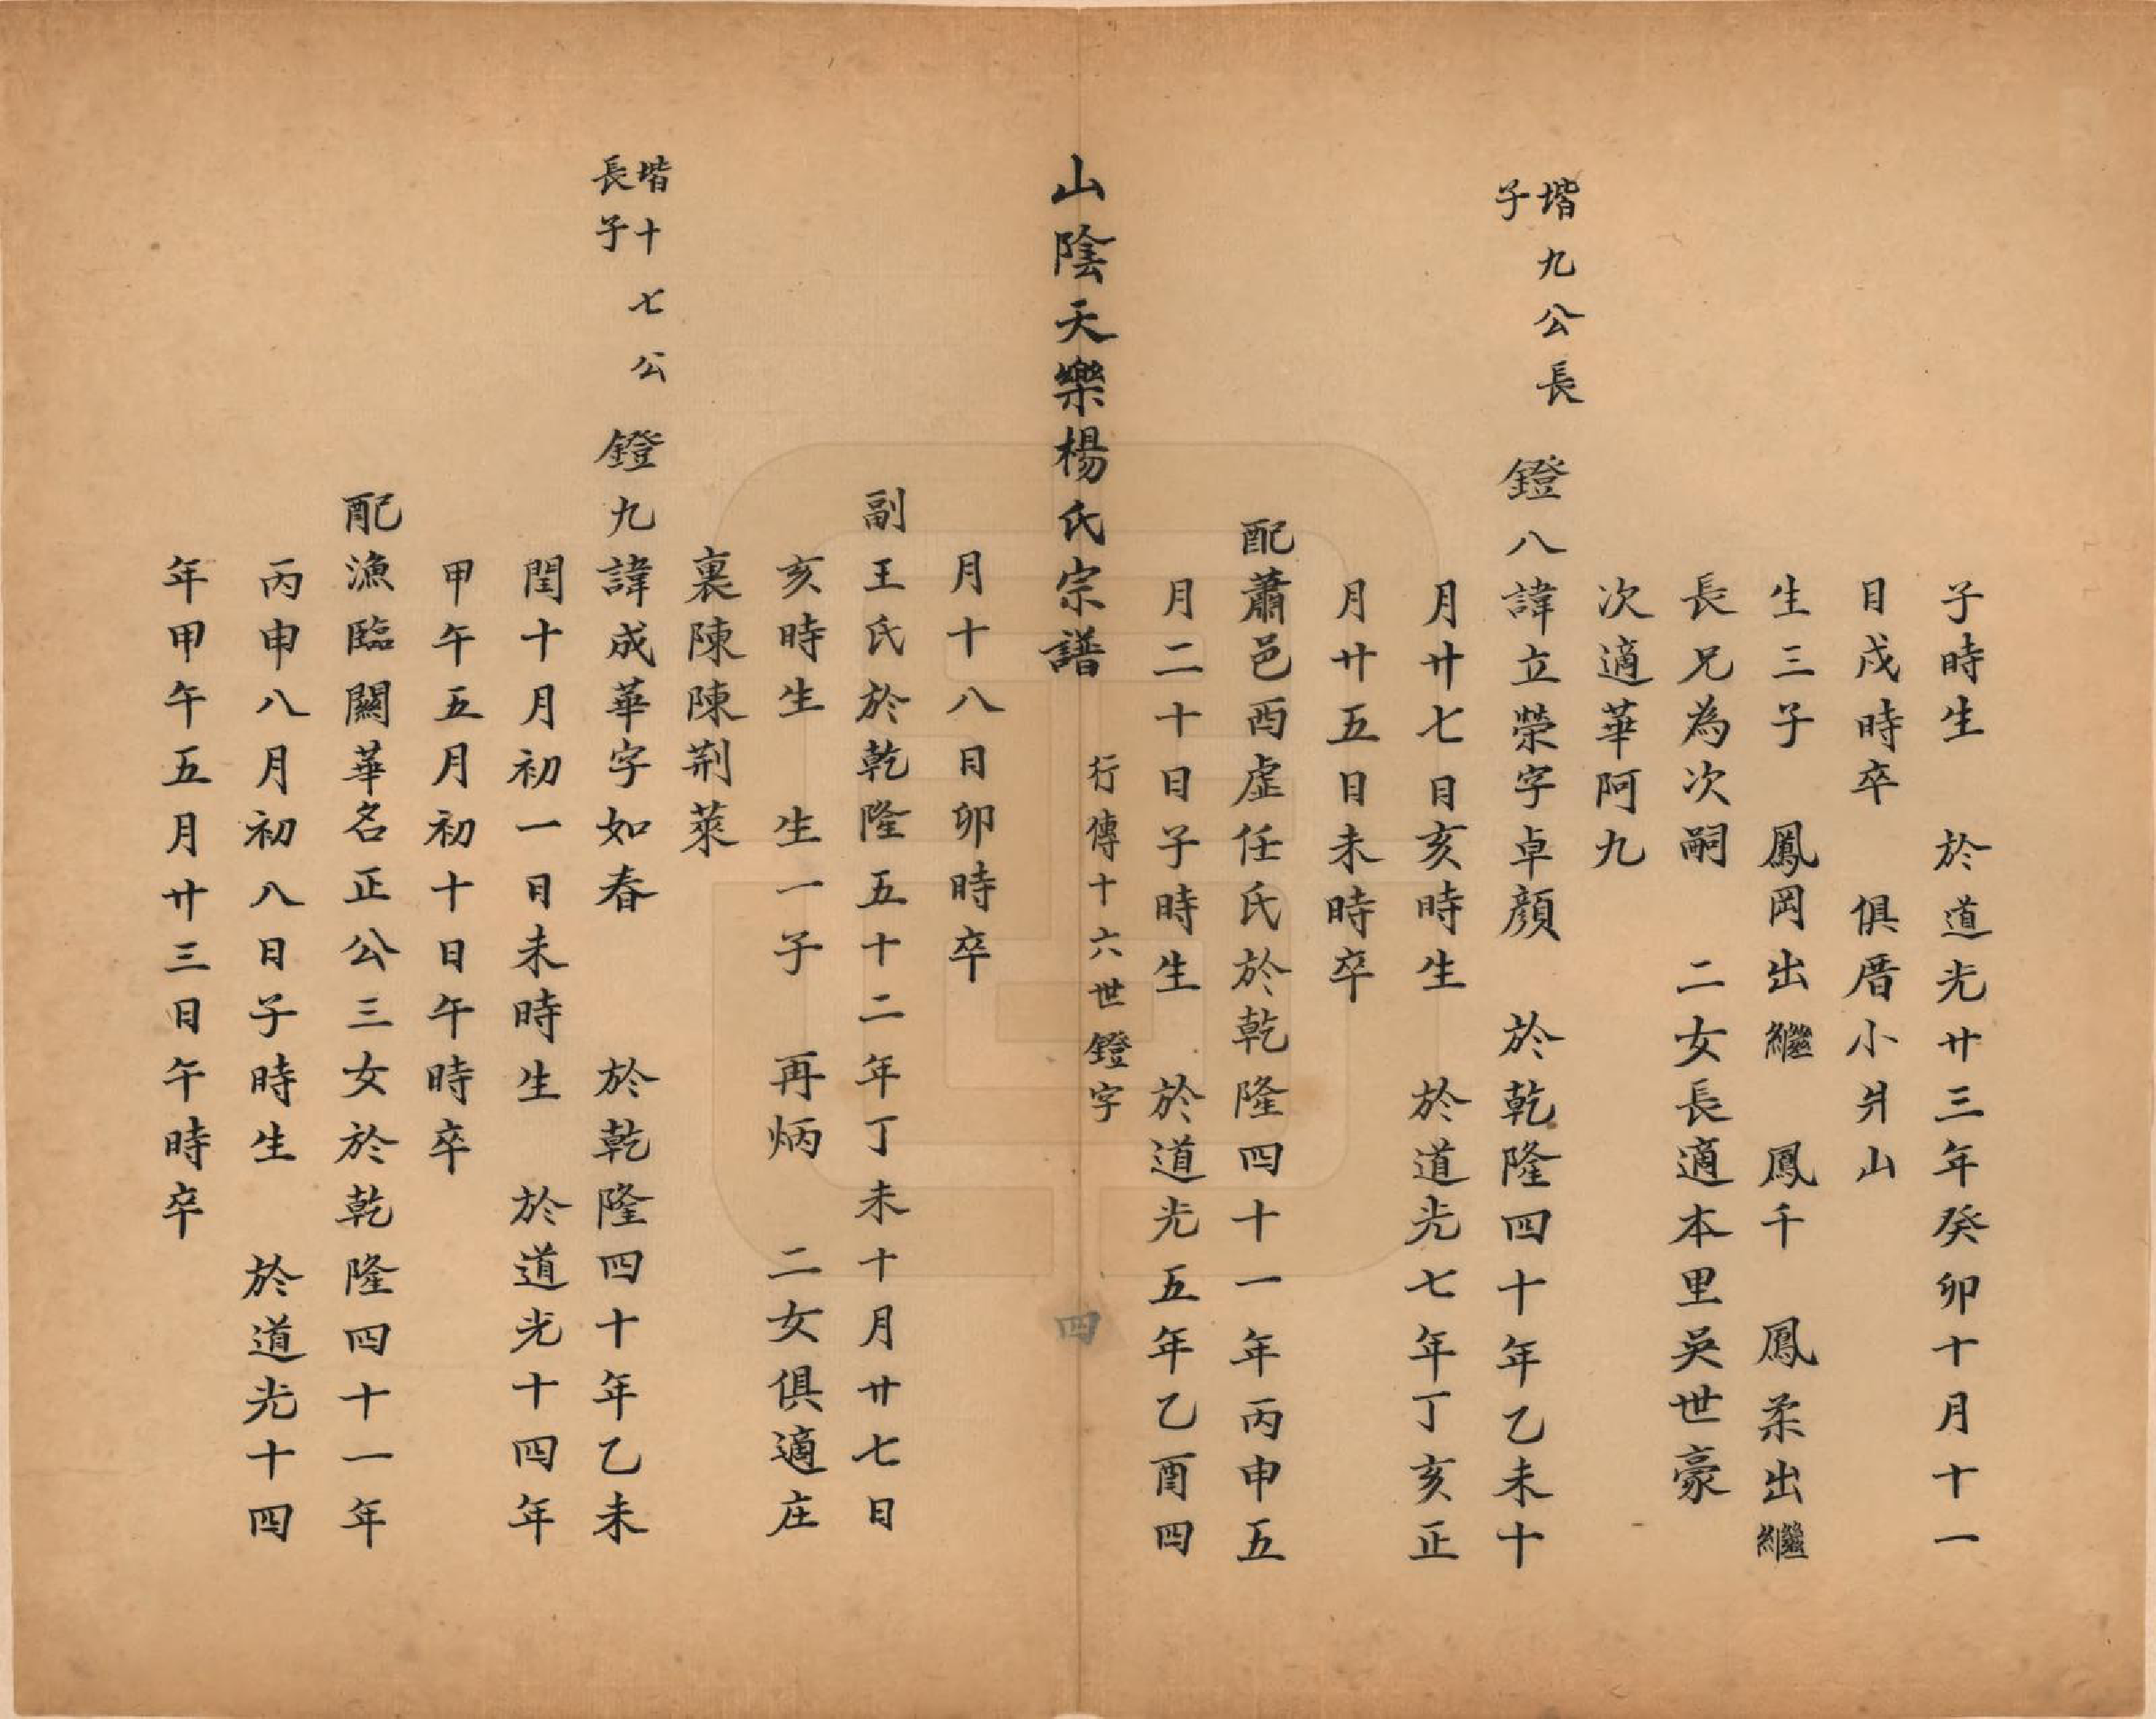 子時生　於道光廿三年癸卯十月十一
日戌時卒　俱厝小爿山
生三子　鳳岡出繼　鳳千　鳳柔出繼
長兄為次嗣　二女長適本里吳世豪
次適華阿九
堦九公長子　鐙八諱立榮字卓顏　於乾隆四十年乙未十
月廿七日亥時生　於道光七年丁亥正
月廿五日未時卒
配蕭邑西虛任氏於乾隆四十一年丙申五
月二十日子時生　於道光五年乙酉四
山陰天樂楊氏宗譜　行傳十六世鐙字　四
月十八日卯時卒
副王氏於乾隆五十二年丁未十月廿七日
亥時生　生一子　再炳　二女俱適庄
裏陳陳荆萊
堦十七公長子　鐙九諱成華字如春　於乾隆四十年乙未
閏十月初一日未時生　於道光十四年
甲午五月初十日午時卒
配漁臨關華名正公三女於乾隆四十一年
丙申八月初八日子時生　於道光十四
年甲午五月廿三日午時卒